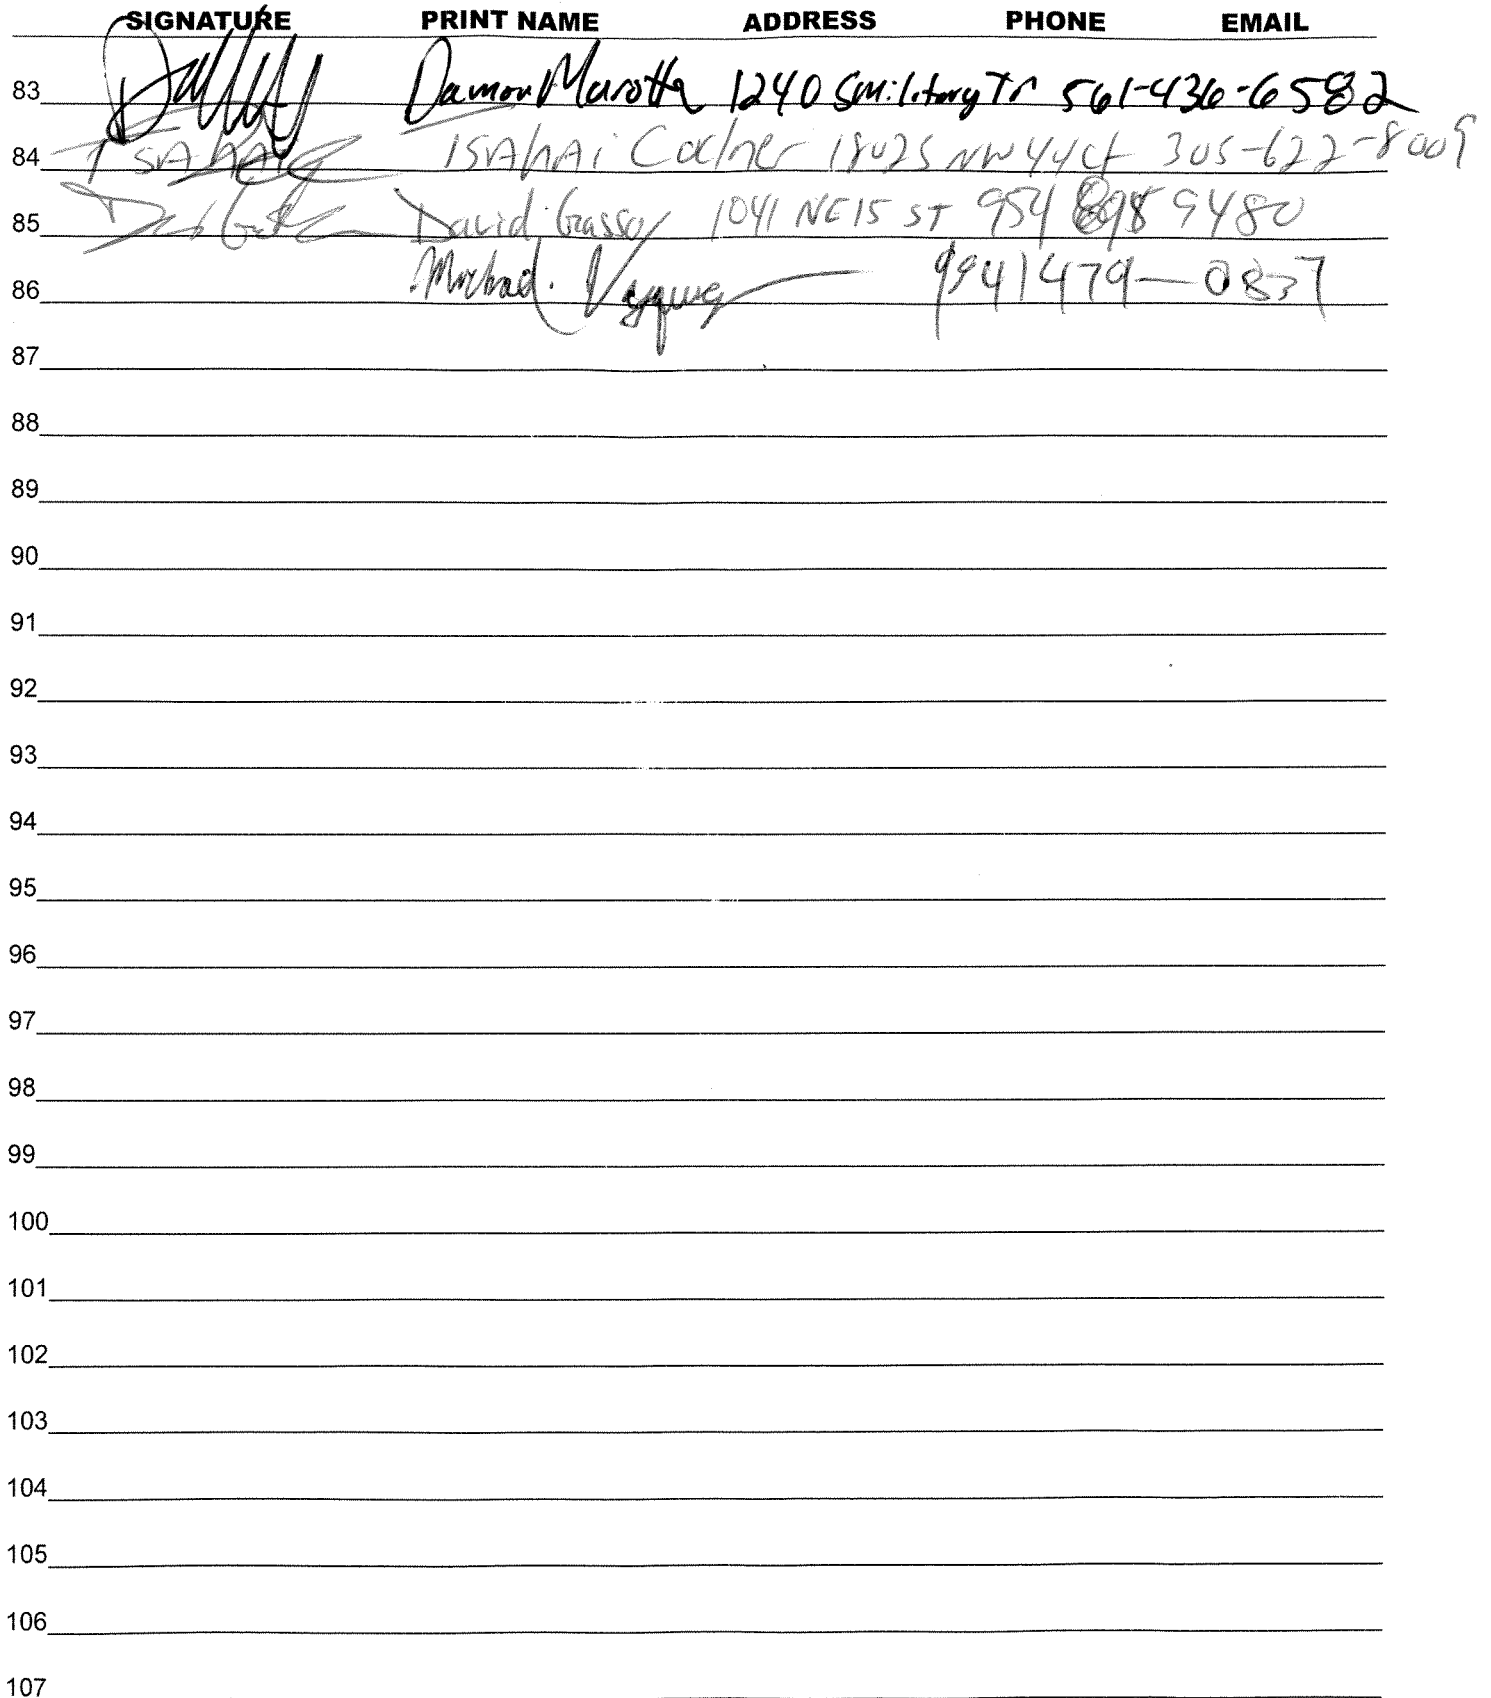 SIGNATURE PRINT NAME ADDRESS PHONE EMAIL
83 Damon Marotta 1240 S Military Tr 561-436-6582
84 ISAhAi 18025 NW 44 Ct 305-622-8009
85 David Grasso 1041 NE 15 ST 954 9480
86 Michael 479-0837
87
88
89
90
91
92
93
94
95
96
97
98
99
100
101
102
103
104
105
106
107